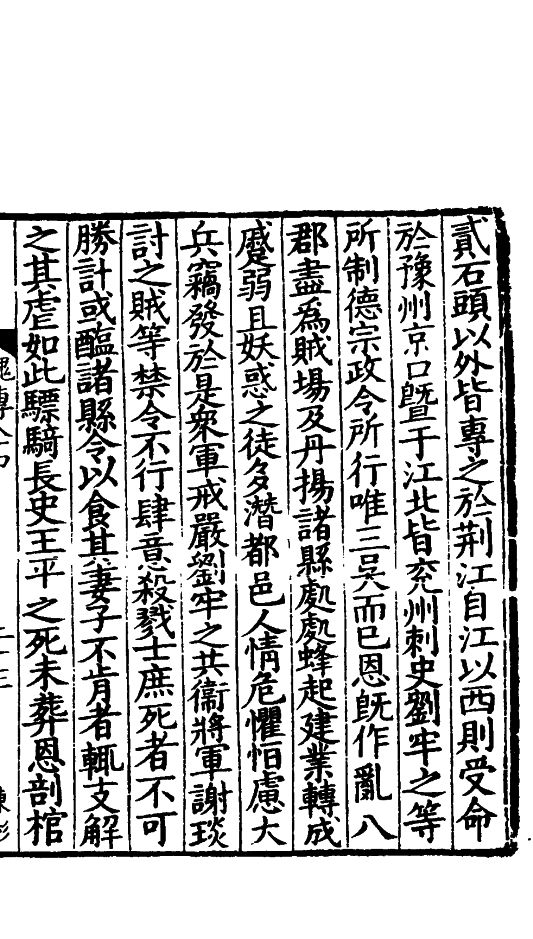 貳石頭以外皆專之於荆江自江以西則受命
於豫州京口暨于江北皆兖州刺史劉牢之等
所制德宗政令所行唯三吳而已恩旣作亂八
郡盡爲賊塲及丹揚諸縣處處蜂起建業轉成
蹙弱且妖惑之徒多潛都邑人情危懼恒慮大
兵竊發於是衆軍戒嚴劉牢之共衞將軍謝琰
討之賊等禁令不行肆意殺戮士庶死者不可
勝計或醢諸縣令以食其妻子不肯者輒支解
之其虐如此驃騎長史王平之死未葬恩剖棺